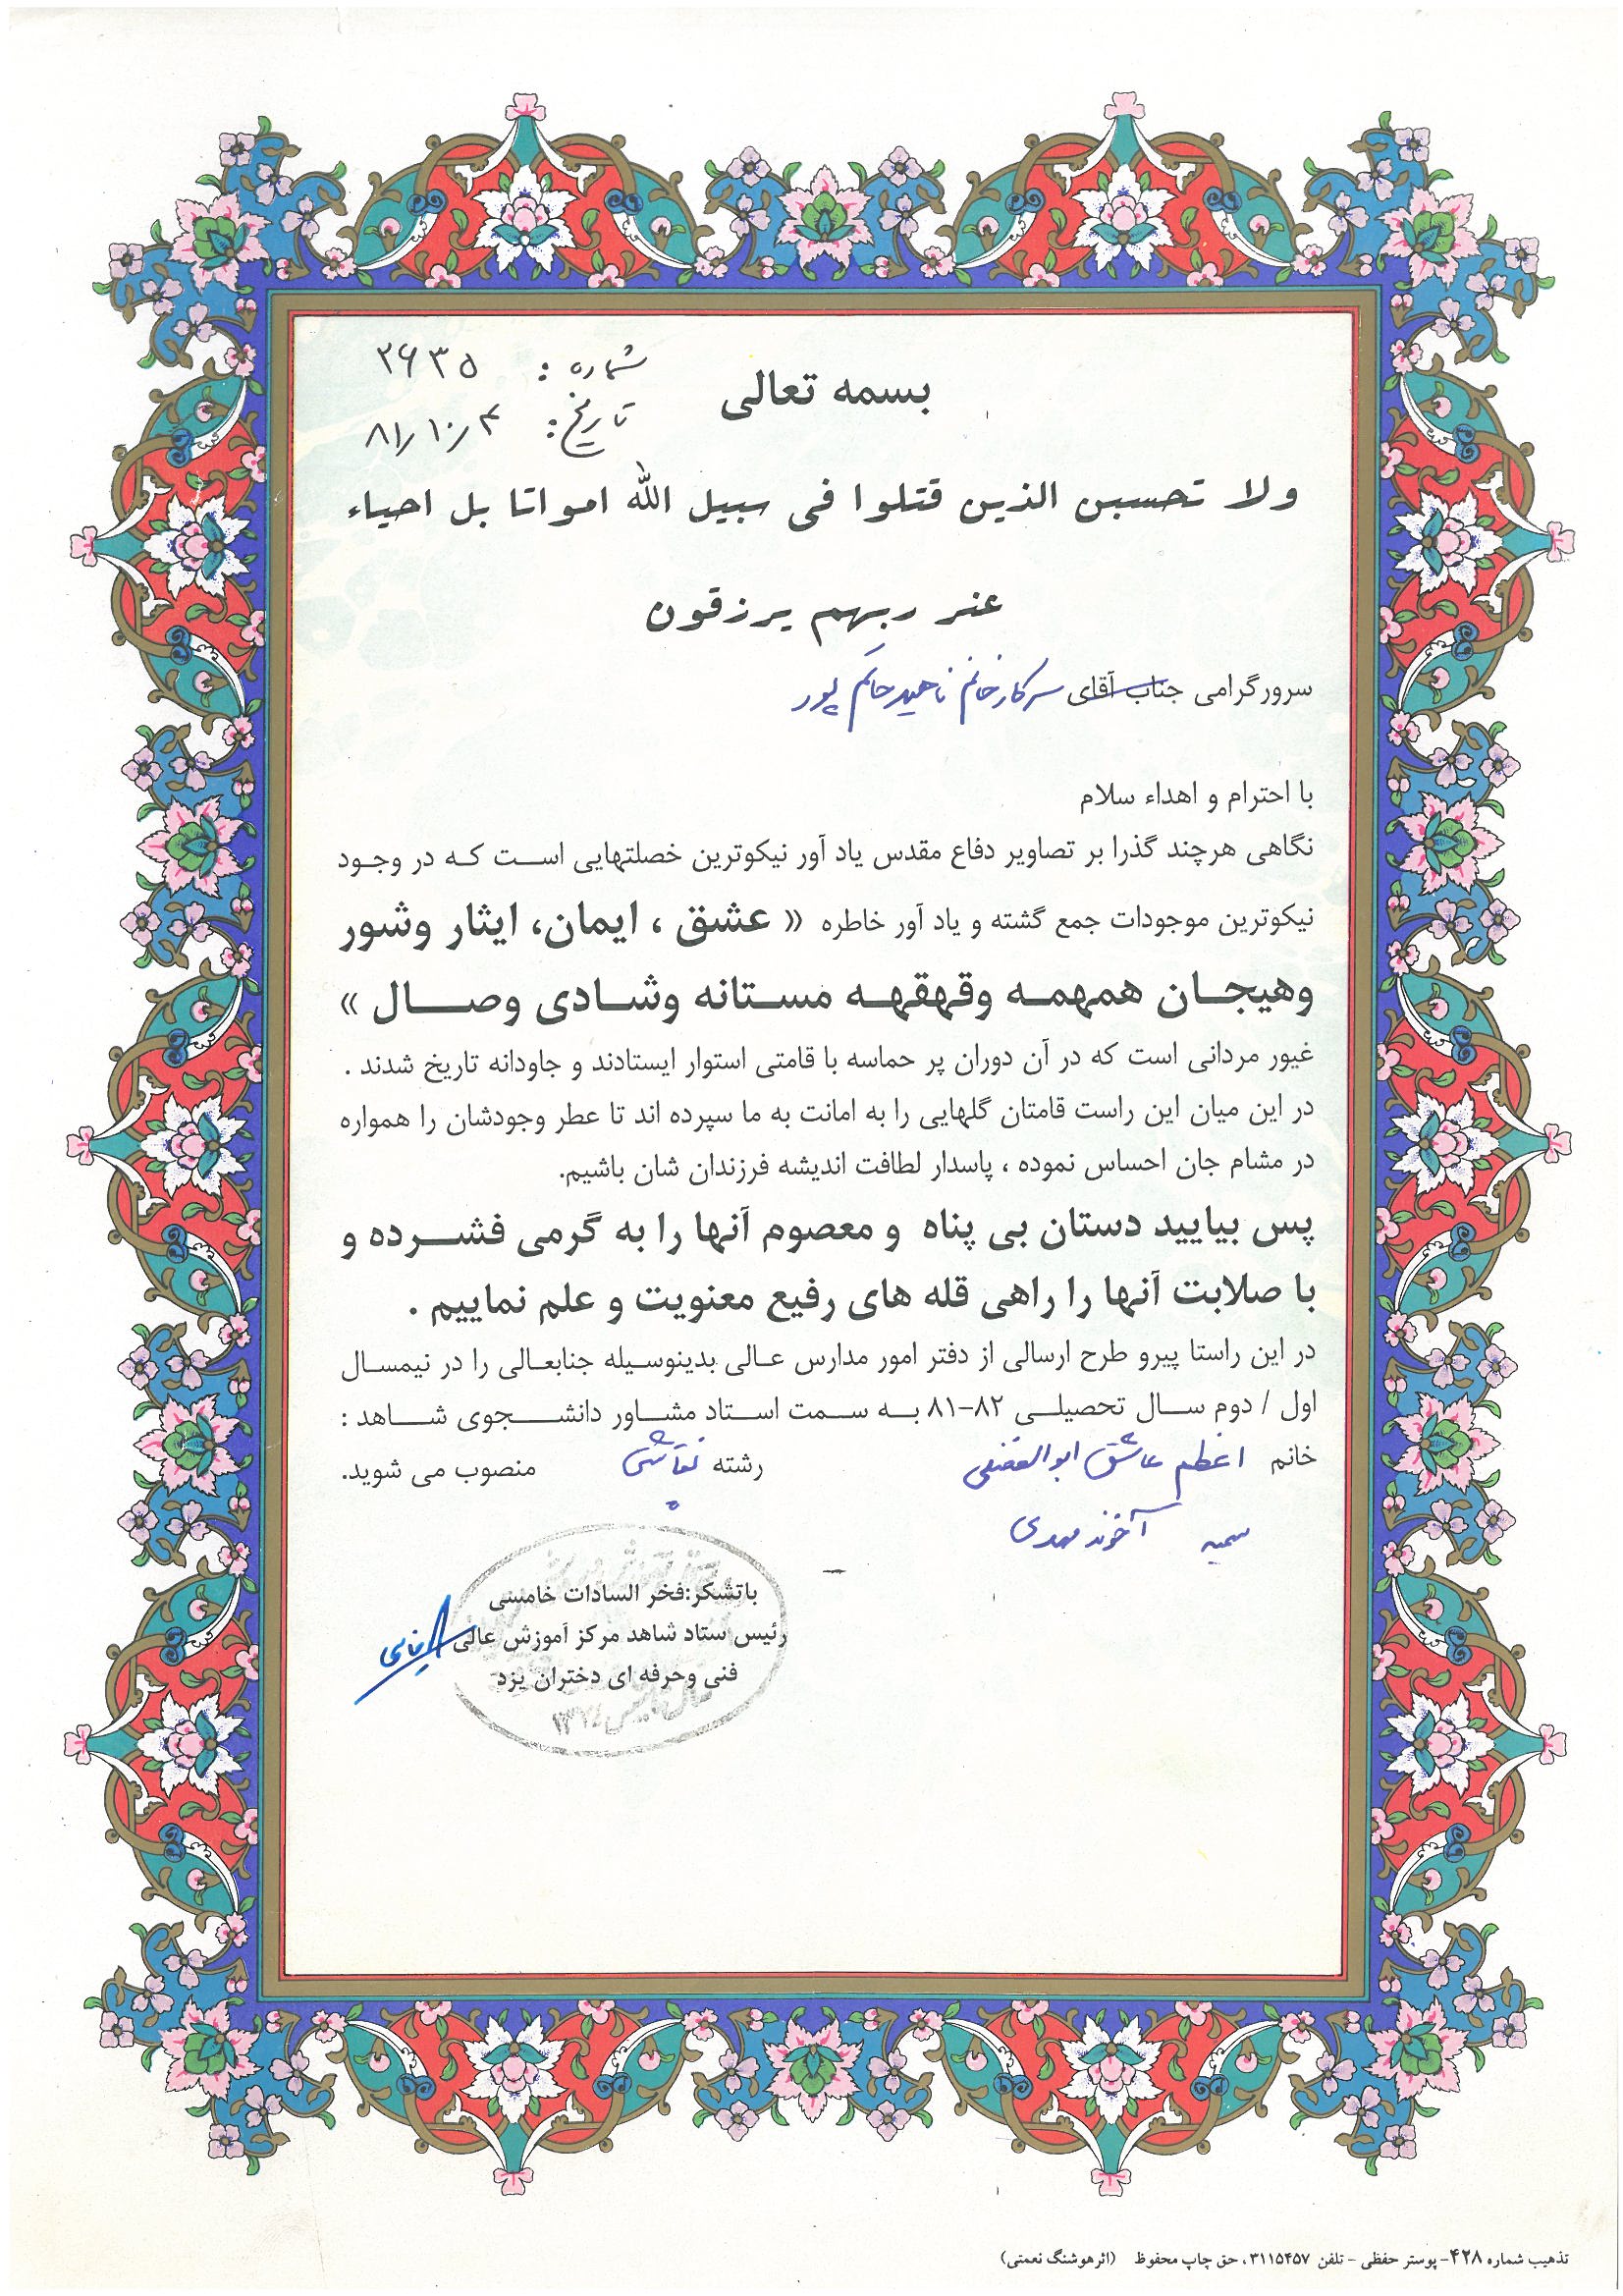 بسمه تعالی
شماره : ۲۶۳۵
تاریخ : ۸۱/۱۰/۴
ولا تحسبن الذین قتلوا فی سبیل الله امواتا بل احیاء
عند ربهم یرزقون
سرور گرامی جناب آقای سرکار خانم ناهید حاکم پور
با احترام و اهداء سلام
نگاهی هرچند گذرا بر تصاویر دفاع مقدس یاد آور نیکوترین خصلتهایی است که در وجود
نیکوترین موجودات جمع گشته و یاد آور خاطره « عشق ، ایمان، ایثار وشور
وهیجان همهمه وقهقهه مستانه وشادی وصال »
غیور مردانی است که در آن دوران پر حماسه با قامتی استوار ایستادند و جاودانه تاریخ شدند .
در این میان این راست قامتان گلهایی را به امانت به ما سپرده اند تا عطر وجودشان را همواره
در مشام جان احساس نموده ، پاسدار لطافت اندیشه فرزندان شان باشیم.
پس بیایید دستان بی پناه و معصوم آنها را به گرمی فشرده و
با صلابت آنها را راهی قله های رفیع معنویت و علم نماییم .
در این راستا پیرو طرح ارسالی از دفتر امور مدارس عالی بدینوسیله جنابعالی را در نیمسال
اول / دوم سال تحصیلی ۸۲-۸۱ به سمت استاد مشاور دانشجوی شاهد :
خانم اعظم عاشق ابوالفضلی رشته نقاشی منصوب می شوید.
سمیه آخوند مهدی
باتشکر:فخر السادات خامسی
رئیس ستاد شاهد مرکز آموزش عالی
فنی وحرفه ای دختران یزد
تذهیب شماره ۴۲۸- پوستر حفظی - تلفن ۳۱۱۵۴۵۷ ، حق چاپ محفوظ (اثرهوشنگ نعمتی)